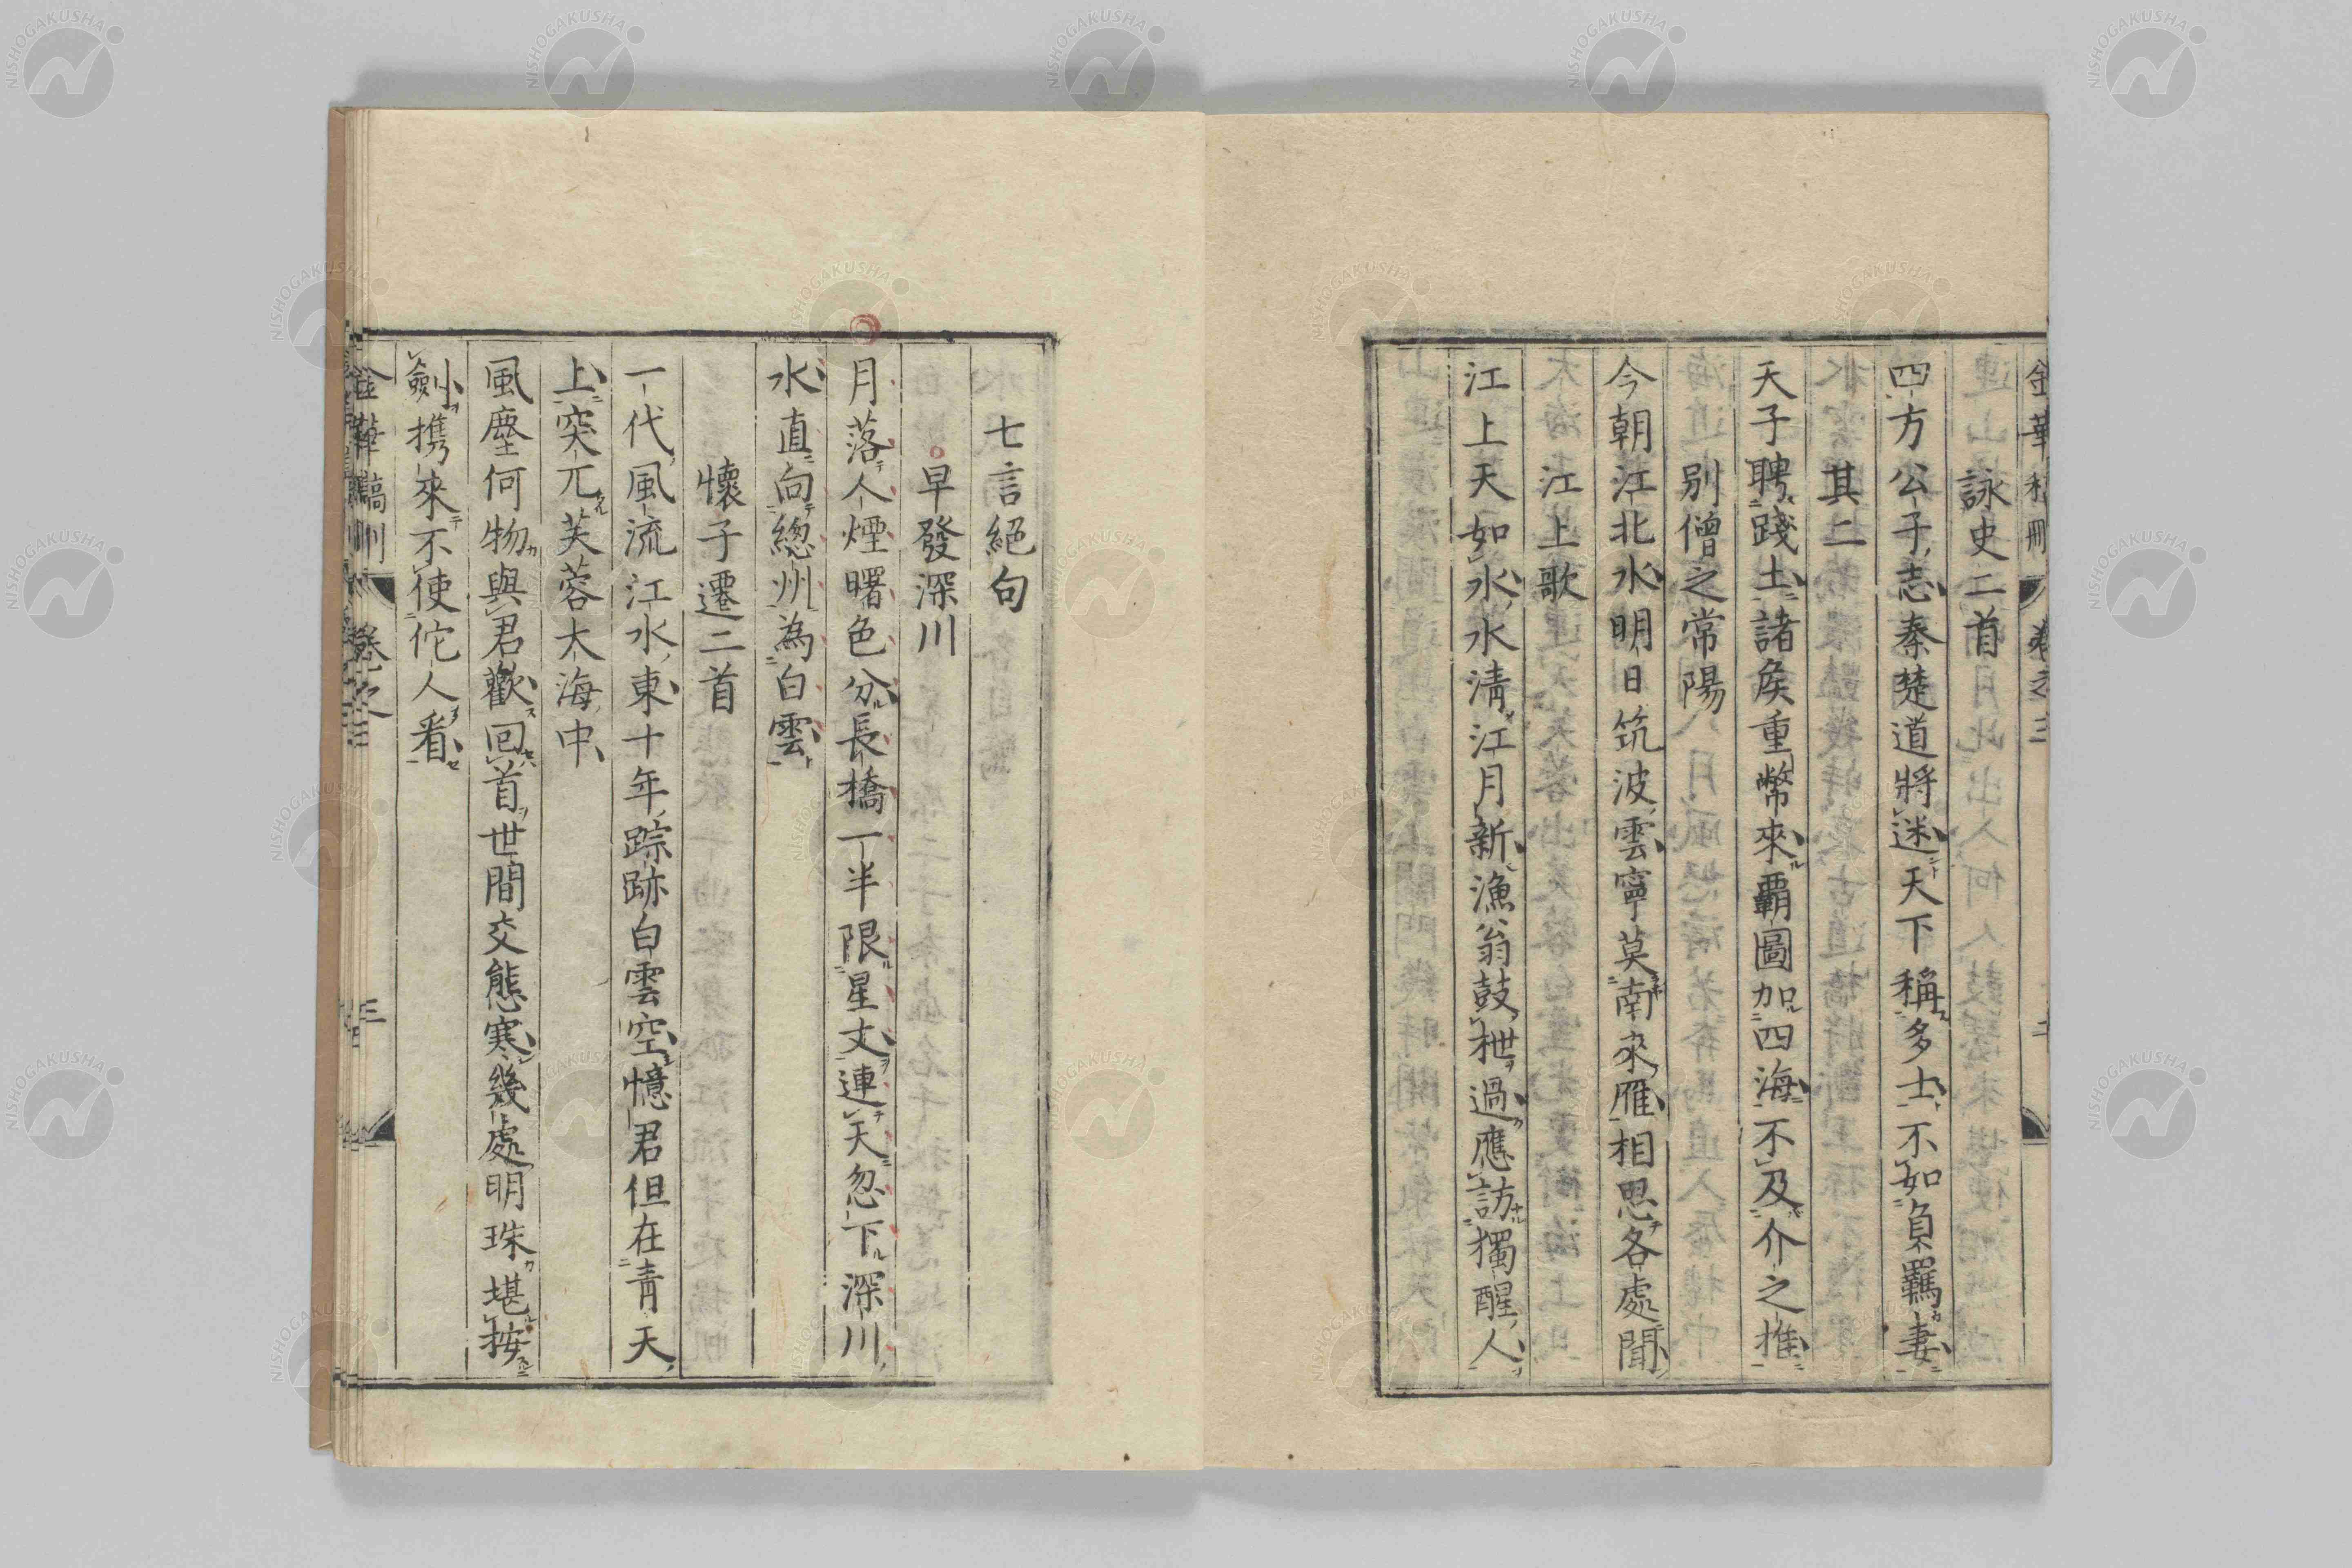 金華稿刪 卷之三
詠史二首
四方公子志秦楚道將迷天下稱多士不如負羈妻
其二
天子聘踐土諸矦重幣來覇圖加四海不及介之推
別僧之常陽
今朝江北水明日筑波雲寧莫南來雁相思各處聞
江上歌
江上天如水水清江月新漁翁鼓枻過應訪獨醒人
七言絕句
早發深川
月落人煙曙色分長橋一半限星文連天忽下深川
水直向總州為白雲
懷子遷二首
一代風流江水東十年踪跡白雲空憶君但在青天
上突兀芙蓉大海中
風塵何物與君歡回首世間交態寒幾處明珠堪按
劍攜來不使佗人看
金華稿刪 卷之三
NISHOGAKUSHA